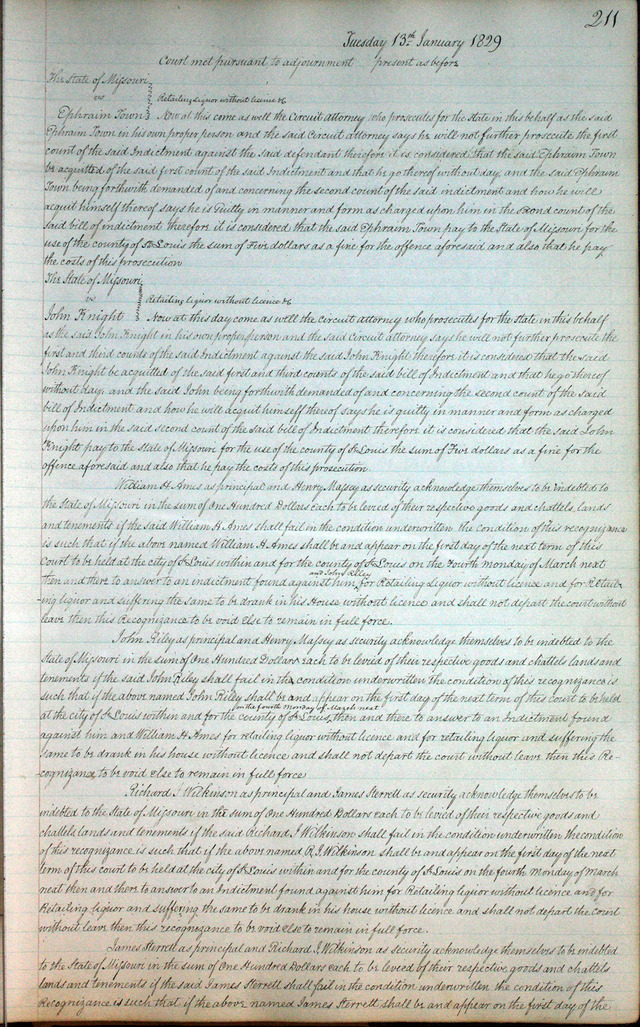 211
Tuesday 13th January 1829
Court met pursuant to adjournment present as before
The State of Missouri
vs Retailing liquor without licence &c
Ephraim Town Now at this come as well the Circuit attorney who prosecutes for the State in this behalf as the said
Ephraim Town in his own proper person and the said Circuit attorney says he will not further prosecute the first
count of the said Indictment against the said defendant therefore it is considered that the said Ephraim Town
be acquitted of the said first count of the said Indictment and that he go thereof without day, and the said Ephraim
Town being forthwith demanded of and concerning the second count of the said indictment and how he will
acquit himself thereof says he is Guilty in manner and form as charged upon him in the second count of the
said bill of indictment therefore it is considered that the said Ephraim Town pay to the State of Missouri for the
use of the county of St Louis the sum of Five dollars as a fine for the offence aforesaid and also that he pay
the costs of this prosecution
The State of Missouri
vs Retailing liquor without licence &c
John Knight Now at this day come as well the circuit attorney who prosecutes for the state in this behalf
as the said John Knight in his own proper person and the said Circuit attorney says he will not further prosecute the
first and third counts of the said Indictment against the said John Knight therefore it is considered that the said
John Knight be acquitted of the said first and third counts of the said bill of Indictment and that he go thereof
without day, and the said John being forthwith demanded of and concerning the second count of the said
bill of Indictment and how he will acquit himself thereof says he is guilty in manner and form as charged
upon him in the said second count of the said bill of Indictment therefore it is considered that the said John
Knight pay to the State of Missouri for the use of the county of St Louis the sum of Five dollars as a fine for the
offence aforesaid and also that he pay the costs of this prosecution.
William H. Ames as principal and Henry Massey as security acknowledge themselves to be indebted to
the State of Missouri in the sum of One Hundred Dollars each to be levied of their respective goods and chattels, lands
and tenements if the said William H. Ames shall fail in the condition underwritten the condition of this recognizance
is such that if the above named William H. Ames shall be and appear on the first day of the next term of this
Court to be held at the city of St Louis within and for the county of St Louis on the Fourth monday of March next
and John Riley
then and there to answer to an indictment found against him for Retailing Liquor without licence and for Retail-
-ing liquor and suffering the same to be drank in his House without licence and shall not depart the court without
leave then this Recognizance to be void else to remain in full force.
John Riley as principal and Henry Massey as security acknowledge themselves to be indebted to the
State of Missouri in the sum of One Hundred Dollars each to be levied of their respective goods and chattels lands and
tenements if the said John Riley shall fail in the condition underwritten the condition of this recognizance is
such that if the above named John Riley shall be and appear on the first day of the next term of this Court to be held
on the fourth monday of March next
at the city of St Louis within and for the county of St Louis, then and there to answer to an Indictment found
against him and William H. Ames for retailing liquor without licence and for retailing liquor and suffering the
same to be drank in his house without licence and shall not depart the court without leave then this Re-
cognizance to be void else to remain in full force
Richard J Wilkinson as principal and James Sterrell as security acknowledge themselves to be
indebted to the State of Missouri in the sum of One Hundred Dollars each to be levied of their respective goods and
chattels lands and tenements if the said Richard J Wilkinson shall fail in the condition underwritten the condition
of this recognizance is such that if the above named R. J. Wilkinson shall be and appear on the first day of the next
term of this court to be held at the city of St Louis within and for the county of St Louis on the fourth monday of March
next then and there to answer to an Indictment found against him for Retailing liquor without licence and for
Retailing liquor and suffering the same to be drank in his house without licence and shall not depart the Court
without leave then this recognizance to be void else to remain in full force.
James Sterrell as principal and Richard J. Wilkinson as security acknowledge themselves to be indebted
to the State of Missouri in the sum of One Hundred Dollars each to be levied of their respective goods and chattels
lands and tenements if the said James Sterrell shall fail in the condition underwritten the condition of this
Recognizance is such that if the above named James Sterrell shall be and appear on the first day of the